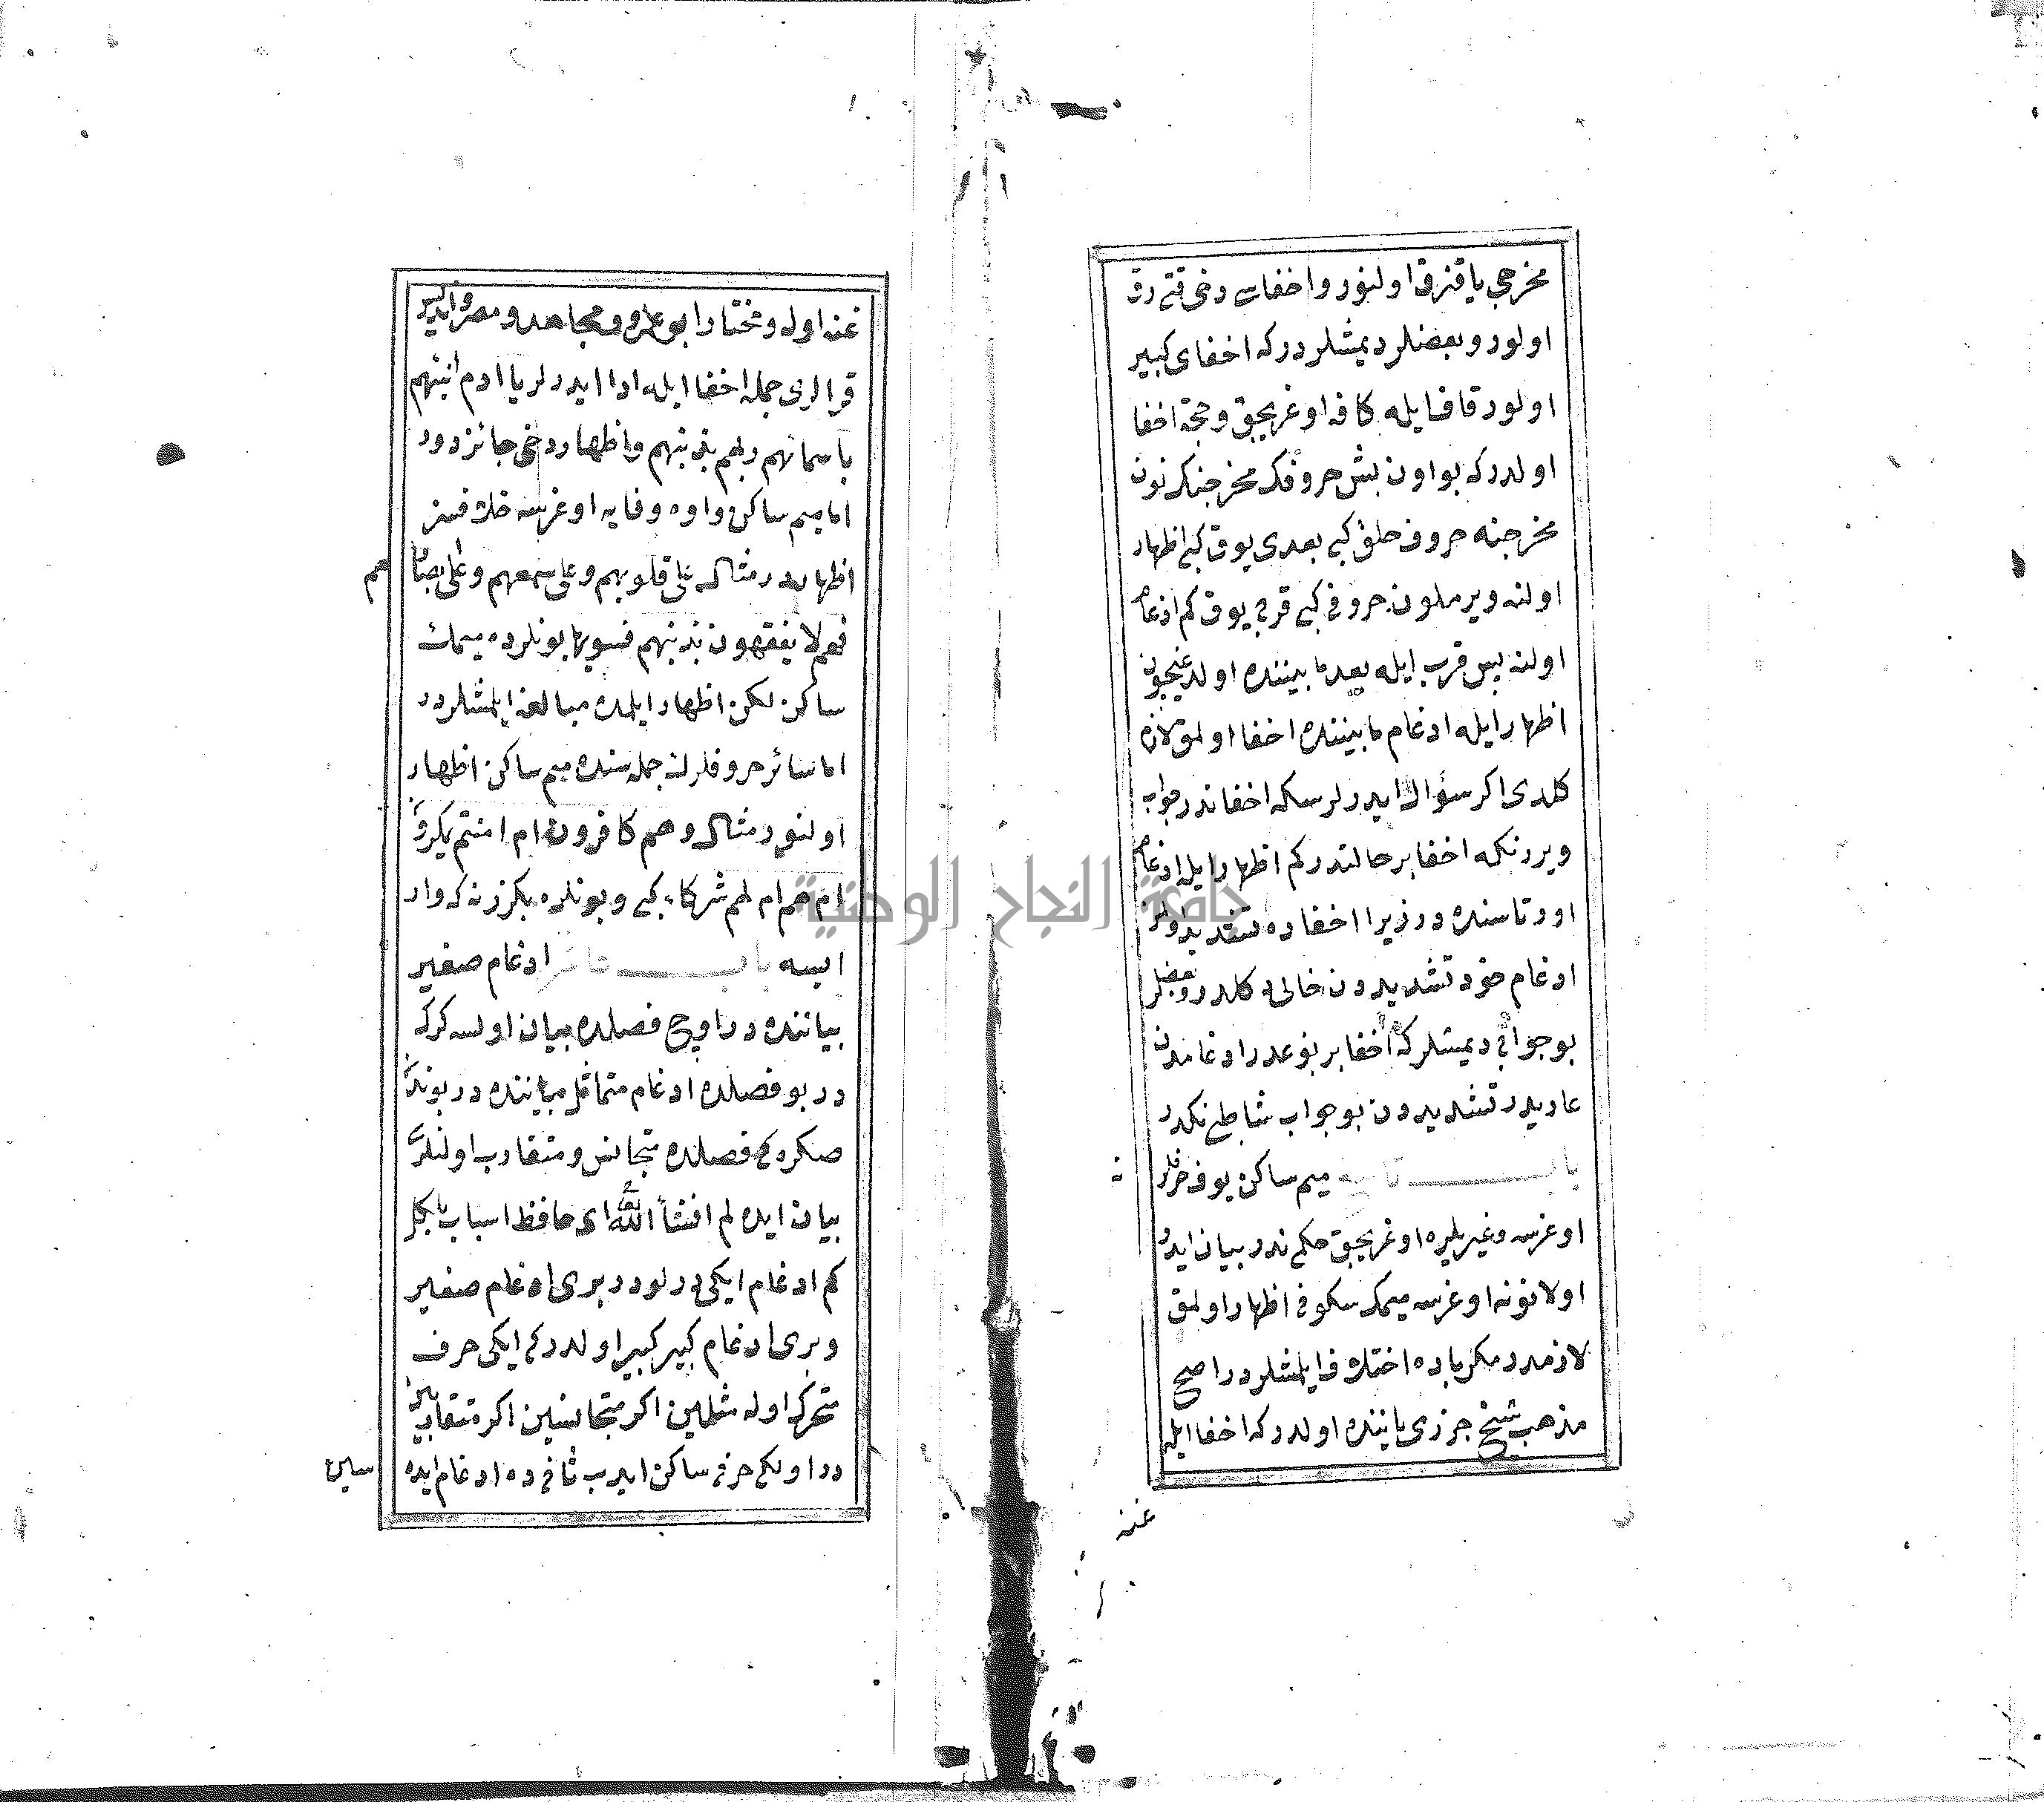 مخرجی یا قنرق اولنور واخفاسی دخی قتی رق
اولور وبعضلر دیمشلر در که اخفای کبیر
اولور قاف ایله کافه اوغریجق وحجة اخفا
اولدر که بو اون بش حروفک مخرجنک نون
مخرجنه حروف حلق کبی بعدی یوق کبی اظهار
اولنه ویرملون حروفی کبی قربی یوق کم ادغام
اولنه پس قرب ایله بعد ما بیننده اولدغیجون
اظهار ایله ادغام ما بیننده اخفا اولمق لازم
کلدی اکر سؤال ایدرلرسکه اخفا ندر جواب
ویردنکه اخفا بر حالتدر کم اظهار ایله ادغام
اورتاسنده در زیرا اخفاده تشدید اولمز
ادغام خود تشدیددن خالی دکلدر وبعضلر
بو جوابی دیمشلر که اخفا بر نوعدر ادغامدن
عاریدر تشدیددن بو جواب شاطبی نکدر
باب تاسع میم ساکن یوف حرفلر
اوغرسه وغیریلره اوغریجق حکم ندر بیان ایدر
اولا نونه اوغرسه میمک سکونی اظهار اولمق
لازمدر مکر باده اختلاف ایلمشلردر اصح
مذهب شیخ جزری یاننده اولدر که اخفا ایله
غنه
غنه اوله ومختار ابو عمرو ومجاهد ومصر
قرالری جمله اخفا ایله ادا ایدرلر یا ادم انبئهم
باسمائهم ربهم بذنبهم واظهار دخی جائزدور
اما میم ساکن واوه وفایه اوغرسه خلافسز
اظهاردر مثال علی قلوبهم وعلی سمعهم وعلی ابصار
هم
فهم لا یفقهون بذنبهم فسویها بونلرده میمک
ساکن لکن اظهار ایلمده مبالغه ایلمشلردر
اما سائر حروفلرک جمله سنده میم ساکن اظهار
اولنور مثال وهم کافرون ام امنتم یمکرون
ام هم ام لهم شرکاء کبی وبونلره بکزر نه که وار
ایسه باب عاشر ادغام صغیر
بیاننده در اوچ فصلده بیان اولسه کرک
در بو فصلده ادغام متماثل بیاننده در بوندن
صکره کی فصلده متجانس ومتقارب اولنلری
بیان ایده لم انشأ الله تعالی ای حافظ اسباب بلکل
کم ادغام ایکی درلودر بری ادغام صغیر
وبری ادغام کبیر کبیر اولدر کم ایکی حرف
متحرک اوله مثلین اکر متجانسین اکر متقاربین
در اولکی حرفی ساکن ایدب ثانی ده ادغام ایده